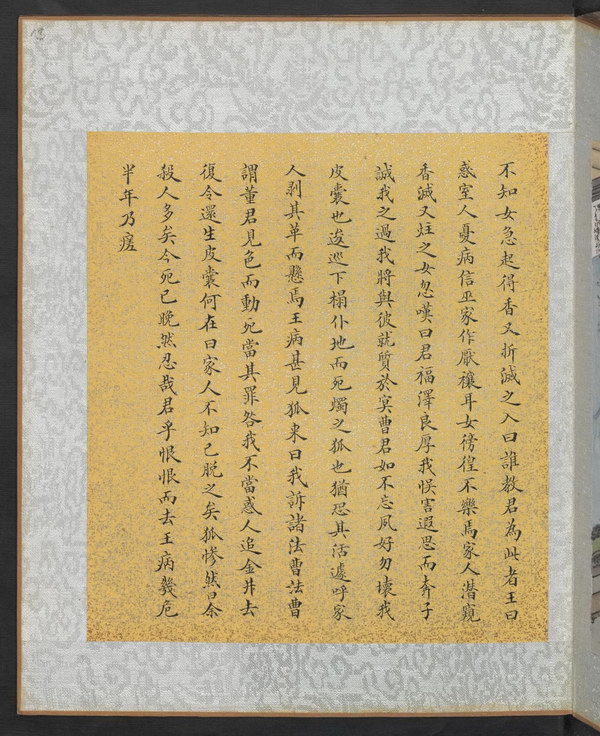 不知女急起得香又折滅之入曰誰教君為此者王曰
惑室人憂病信巫家作厭禳耳女徬徨不樂焉家人潛窺
香滅又炷之女忽嘆曰君福澤良厚我悞害遐思而奔子
誠我之過我將與彼就質於冥曹君如不忘夙好勿壞我
皮囊也逡巡下榻仆地而死燭之狐也猶恐其活遽呼家
人剥其革而懸焉王病甚見狐來曰我訴諸法曹法曹
謂董君見色而動死當其罪咎我不當惑人追金丹去
復令還生皮囊何在曰家人不知已脫之矣狐慘然曰余
殺人多矣今死已晚然忍哉君乎恨恨而去王病幾危
半年乃瘥